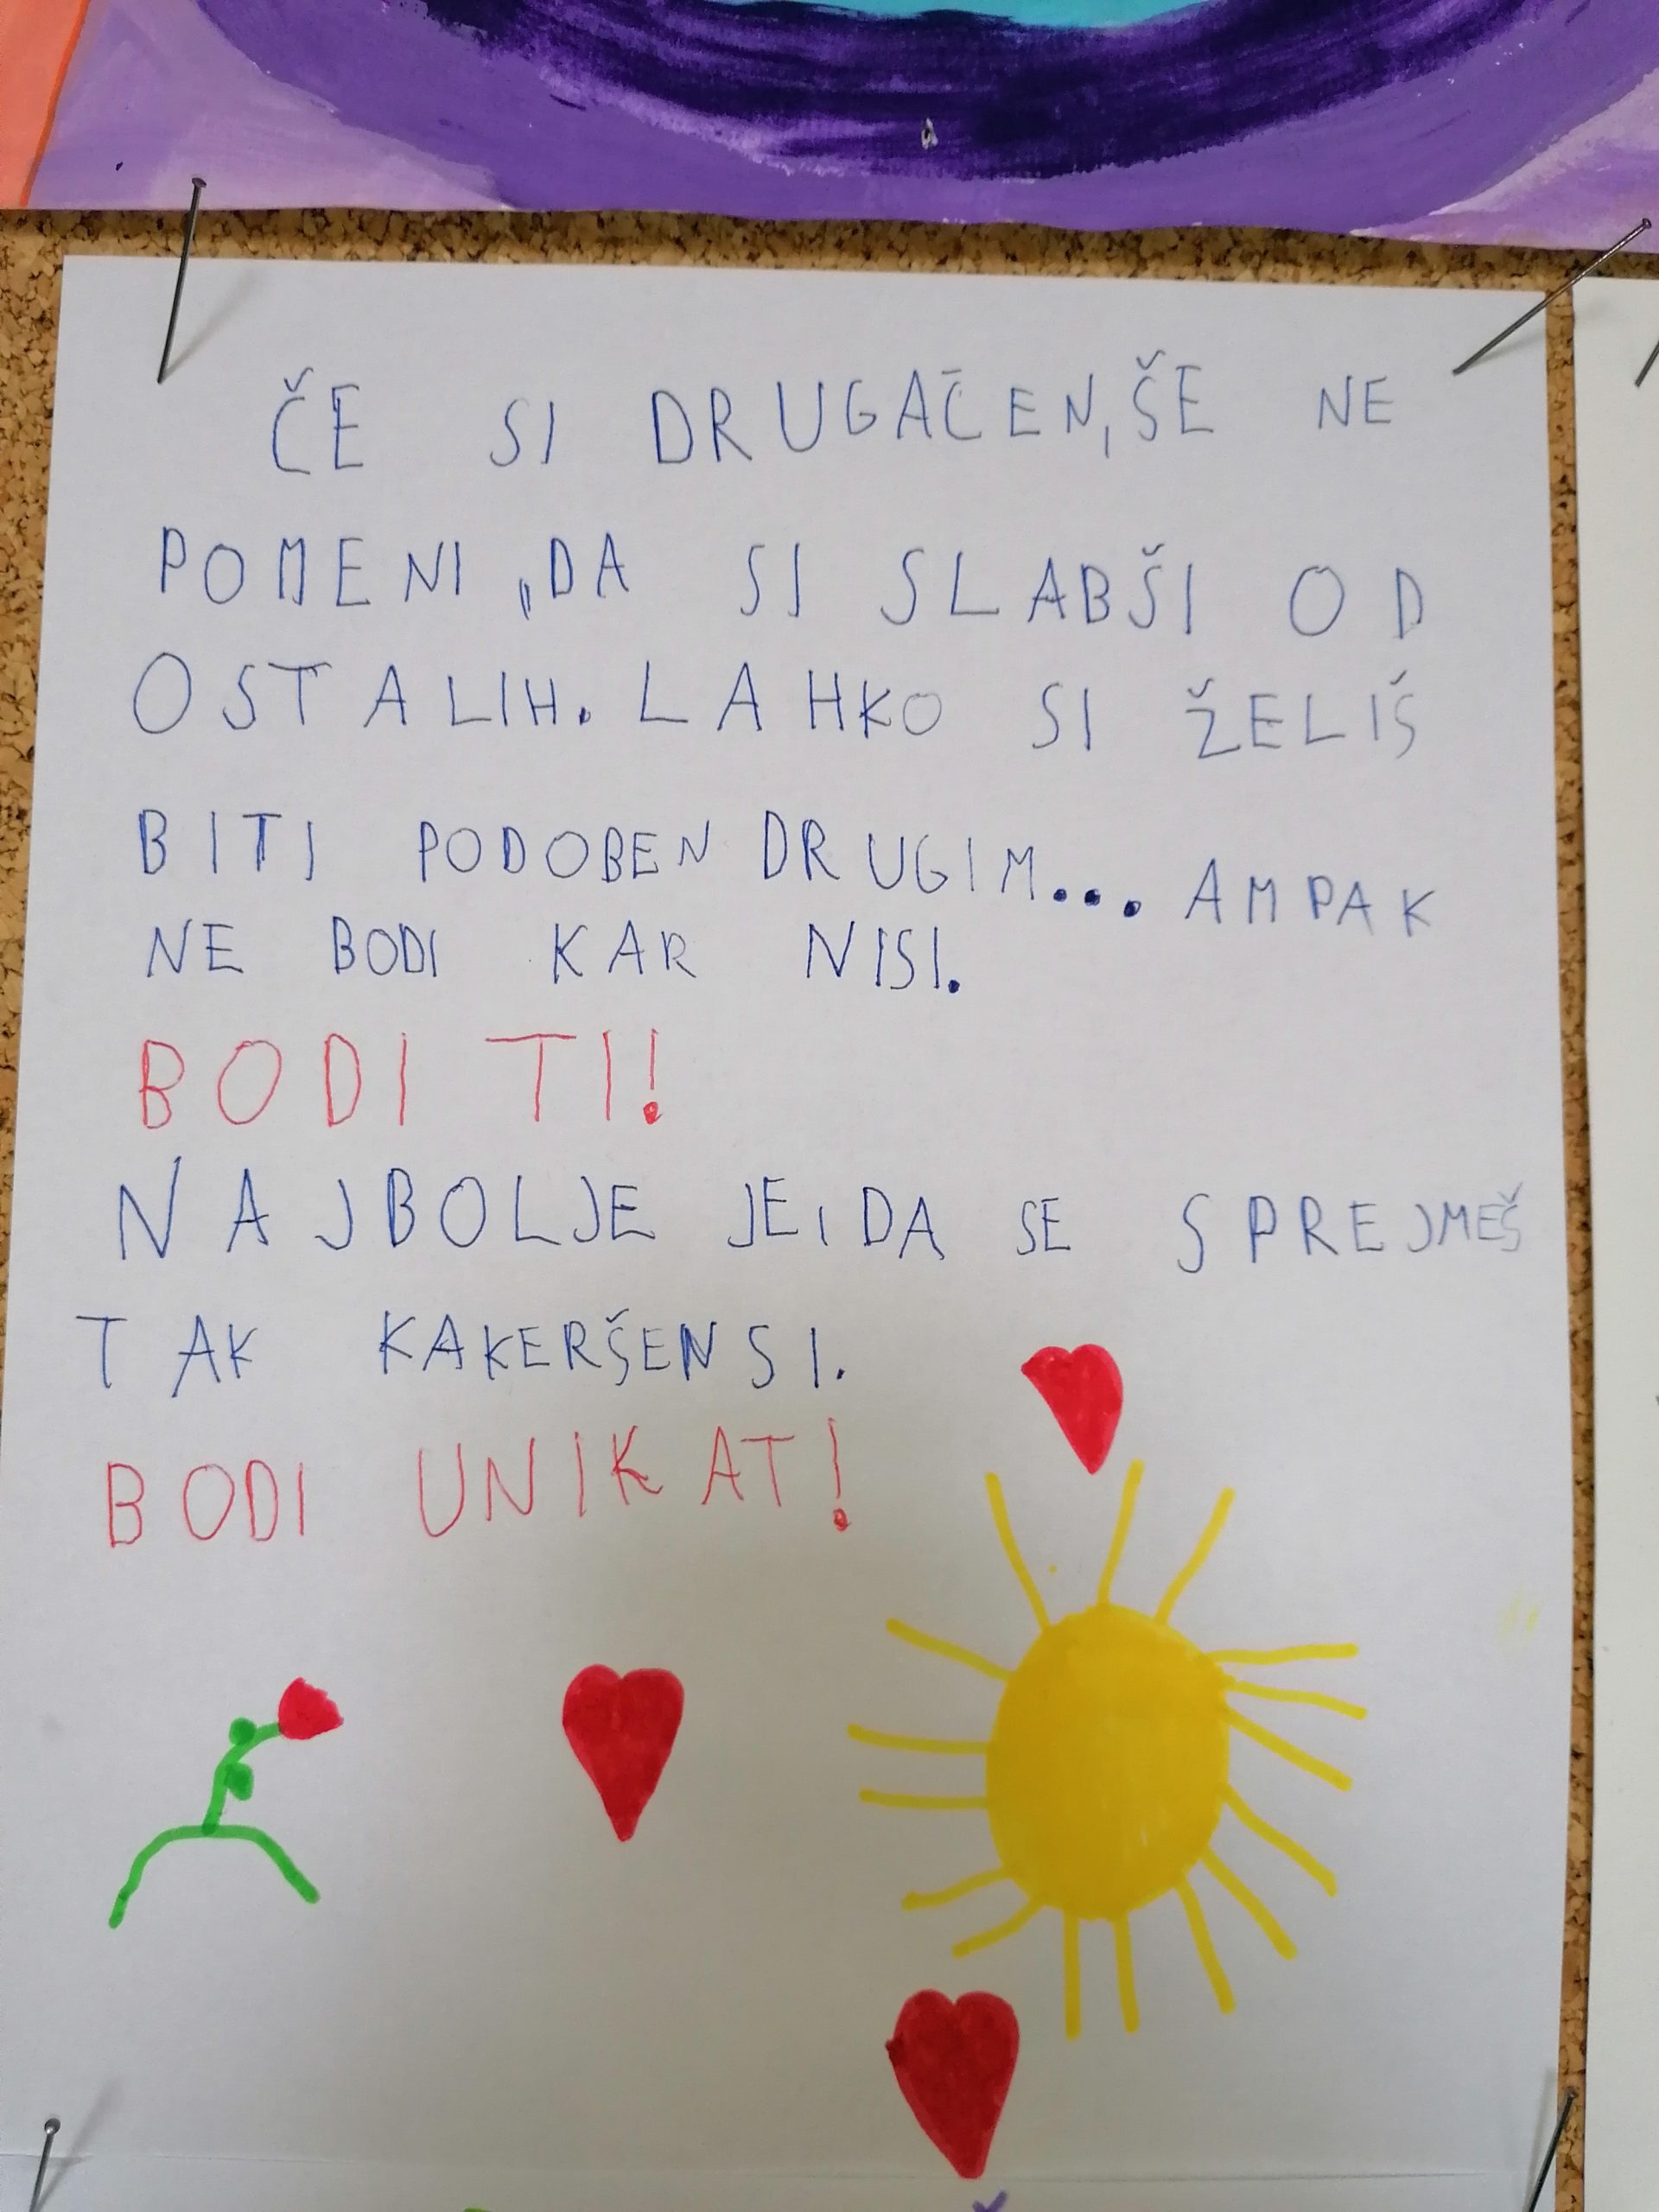 ČE SI DRUGAČEN, ŠE NE
POMENI, DA SI SLABŠI OD
OSTALIH. LAHKO SI ŽELIŠ
BITI PODOBEN DRUGIM... AMPAK
NE BODI KAR NISI.
BODI TI!
NAJBOLJE JE, DA SE SPREJMEŠ
TAK KAKERŠEN SI.
BODI UNIKAT!